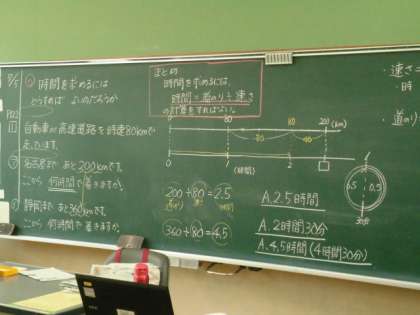 8/5
時間を求めるには
どうすれば よいのだろうか
P02
1
自動車が高速道路を時速80kmで
走っています。
㋐ 名古屋まで あと200kmです。
ここから 何時間で 着きますか。
静岡まで あと360kmです。
ここから 何時間で 着きますか。
まとめ
時間を求めるには、
時間=道のり÷速さ
の計算をすればよい。
0 80 80 200 (km)
80 80
0 1 2 □
(時間)
200÷80=2.5
道のり 速さ 時間
360÷80=4.5
A.2.5時間
A.2時間30分
A.4.5時間(4時間30分)
0.5 0.5
30分
速さ=
・時
・道のり